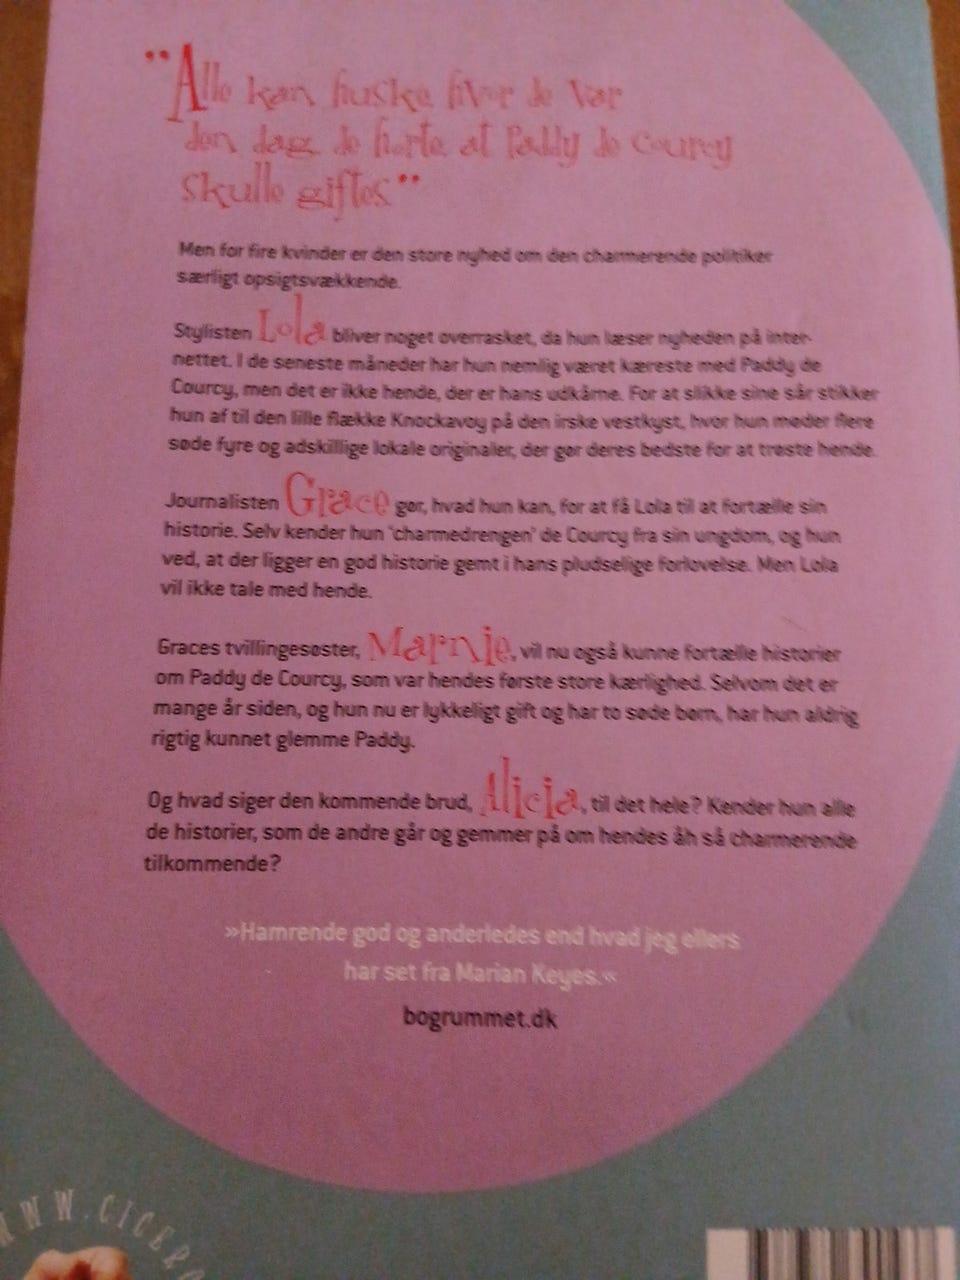 "Alle kan huske hvor de var
den dag, de hørte, at Paddy de Courcy
skulle giftes"
Men for fire kvinder er den store nyhed om den charmerende politiker
særligt opsigtsvækkende.
Stylisten Lola bliver noget overrasket, da hun læser nyheden på inter-
nettet. I de seneste måneder har hun nemlig været kæreste med Paddy de
Courcy, men det er ikke hende, der er hans udkårne. For at slikke sine sår stikker
hun af til den lille flække Knockavoy på den irske vestkyst, hvor hun møder flere
søde fyre og adskillige lokale originaler, der gør deres bedste for at trøste hende.
Journalisten Grace gør, hvad hun kan, for at få Lola til at fortælle sin
historie. Selv kender hun 'charmedrengen' de Courcy fra sin ungdom, og hun
ved, at der ligger en god historie gemt i hans pludselige forlovelse. Men Lola
vil ikke tale med hende.
Graces tvillingesøster, Marnie, vil nu også kunne fortælle historier
om Paddy de Courcy, som var hendes første store kærlighed. Selvom det er
mange år siden, og hun nu er lykkeligt gift og har to søde børn, har hun aldrig
rigtig kunnet glemme Paddy.
Og hvad siger den kommende brud, Alicia, til det hele? Kender hun alle
de historier, som de andre går og gemmer på om hendes åh så charmerende
tilkommende?
»Hamrende god og anderledes end hvad jeg ellers
har set fra Marian Keyes.«
bogrummet.dk
WWW.CICERO